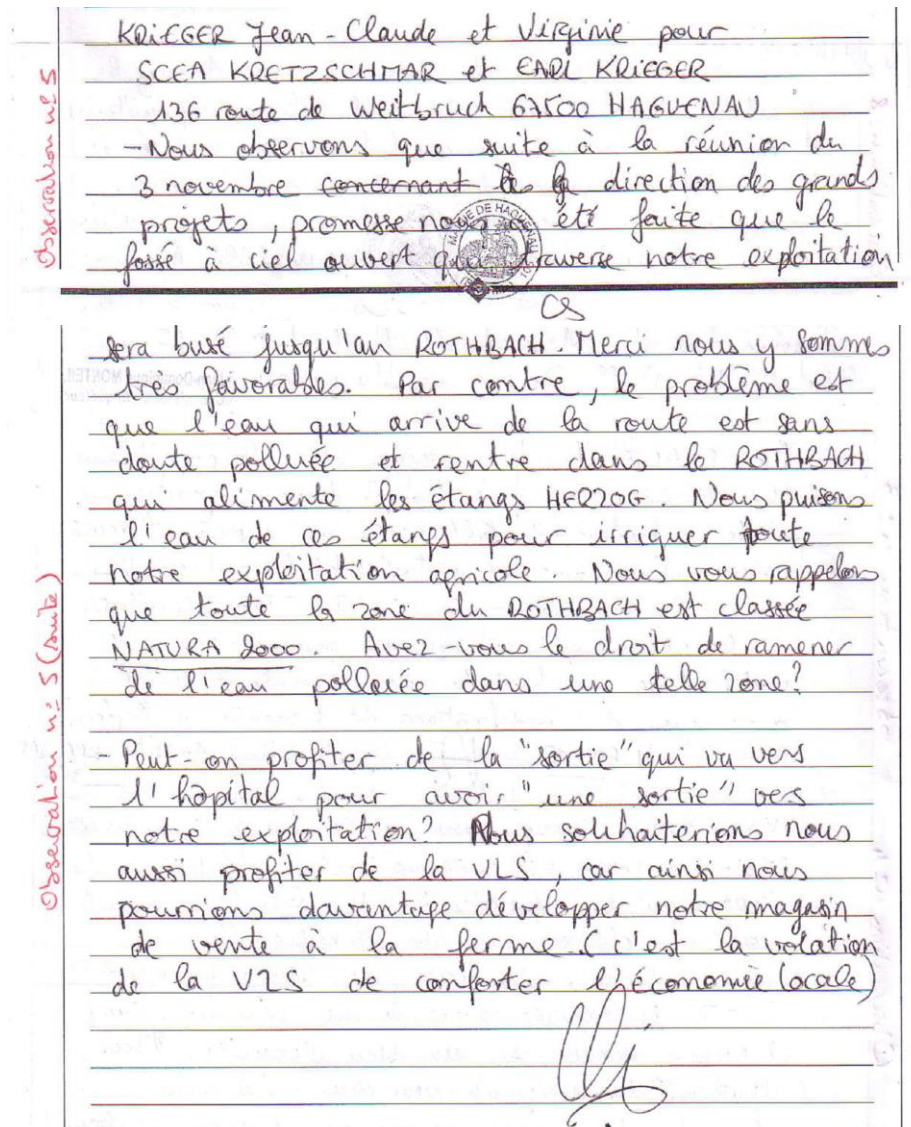 Observation n° 5
KRIEGER Jean-Claude et Virginie pour
SCEA KRETZSCHMAR et EARL KRIEGER
136 route de Weitbruch 67500 HAGUENAU
- Nous observons que suite à la réunion du
3 novembre concernant la direction des grands
projets, promesse nous a été faite que le
fossé à ciel ouvert qui traverse notre exploitation
MAIRIE DE HAGUENAU
CS
Observation n° 5 (suite)
sera busé jusqu'au ROTHBACH. Merci nous y sommes
très favorables. Par contre, le problème est
que l'eau qui arrive de la route est sans
doute polluée et rentre dans le ROTHBACH
qui alimente les étangs HERZOG. Nous puisons
l'eau de ces étangs pour irriguer toute
notre exploitation agricole. Nous vous rappelons
que toute la zone du ROTHBACH est classée
NATURA 2000. Avez-vous le droit de ramener
de l'eau polluée dans une telle zone?
- Peut-on profiter de la "sortie" qui va vers
l'hôpital pour avoir "une sortie" vers
notre exploitation? Nous souhaiterions nous
aussi profiter de la VLS, car ainsi nous
pourrions davantage développer notre magasin
de vente à la ferme. (c'est la votation
de la VLS de conforter l'économie locale)